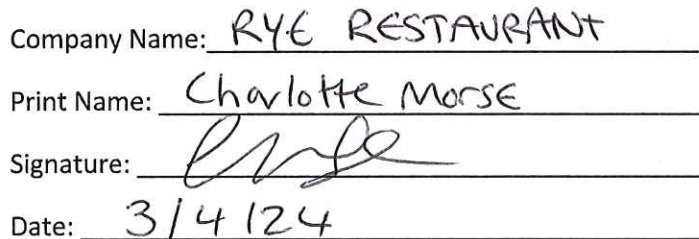 Company Name: RYE RESTAURANT
Print Name: Charlotte Morse
Signature:
Date: 3/4/24